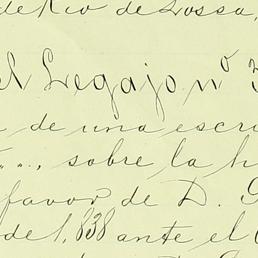 de Rio de Lossa,
el Legajo nº 3
de una escri
" ", sobre la h
favor de D. G
de 1,838 ante el